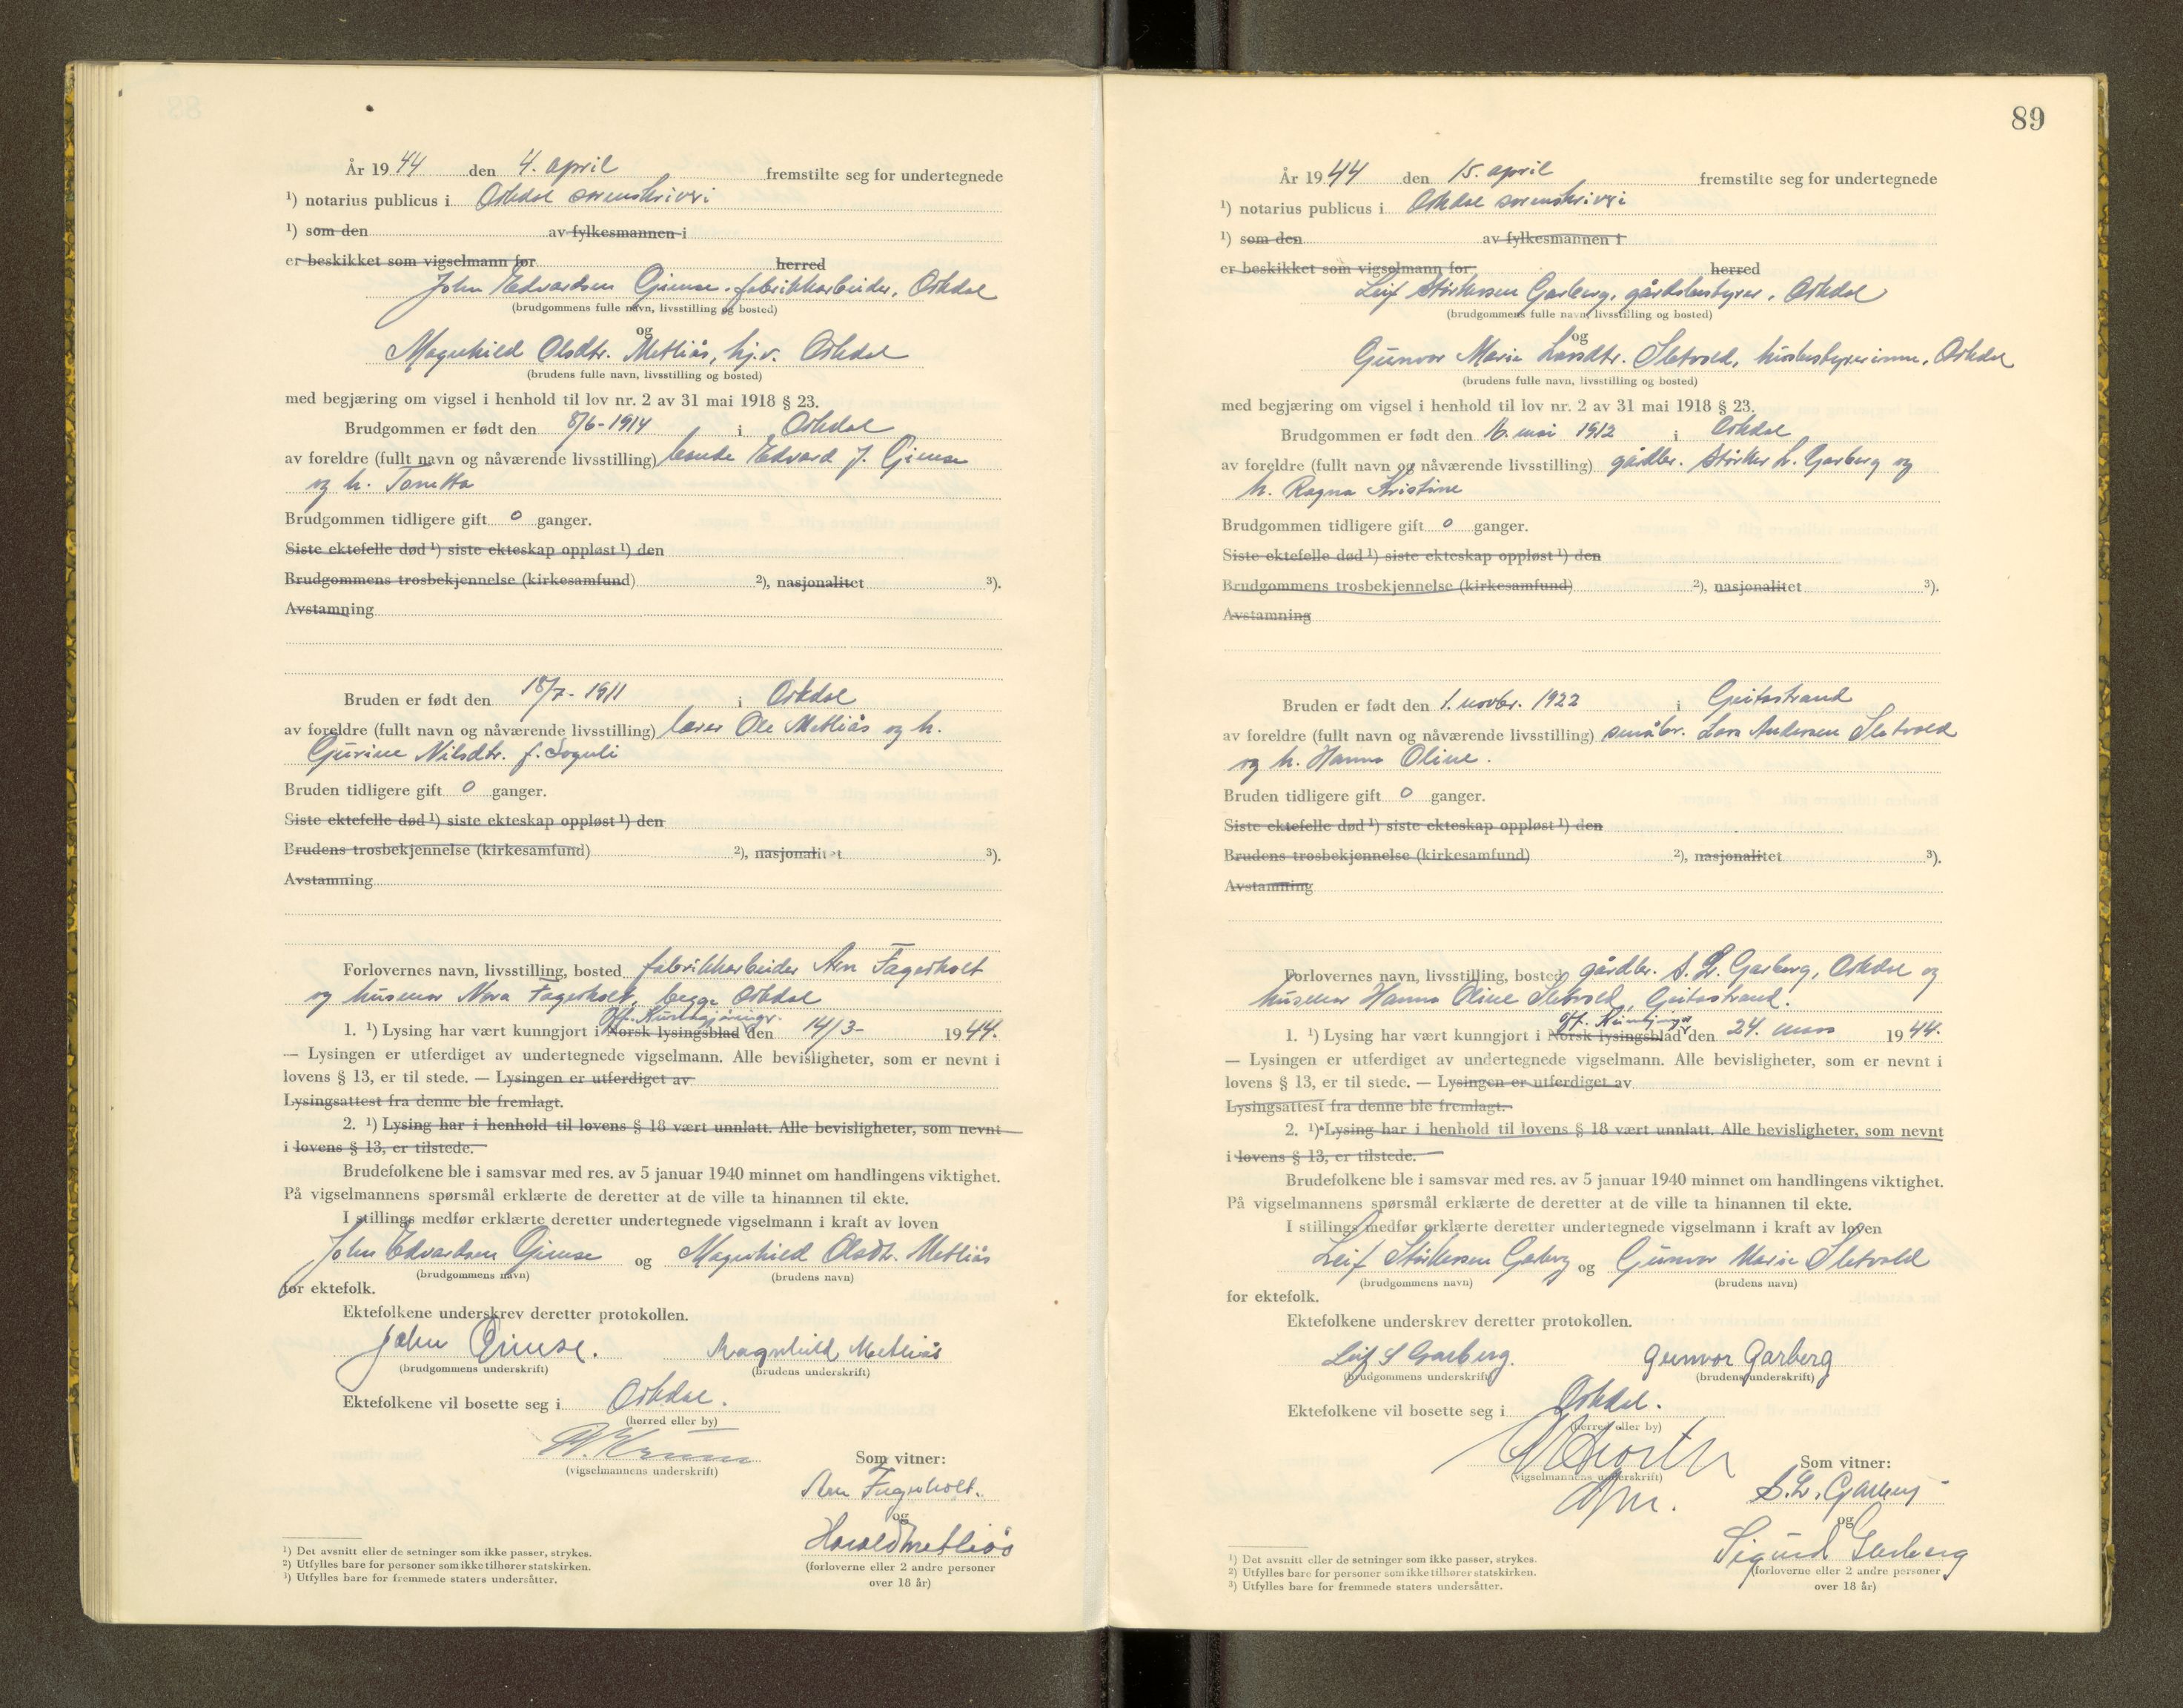 År 19 44 den 4. april fremstilte seg for undertegnede
¹) notarius publicus i Orkdal sorenskriveri
¹) som den av fylkesmannen i
er beskikket som vigselmann for herred
John Edvardsen Gjemse, fabrikkarbeider, Orkdal
(brudgommens fulle navn, livsstilling og bosted)
og
Magnhild Olsdtr. Metliås, hj.v. Orkdal
(brudens fulle navn, livsstilling og bosted)
med begjæring om vigsel i henhold til lov nr. 2 av 31 mai 1918 § 23.
Brudgommen er født den 8/6-1914 i Orkdal
av foreldre (fullt navn og nåværende livsstilling) bonde Edvard J. Gjemse
og h. Tonetta
Brudgommen tidligere gift 0 ganger.
Siste ektefelle død ¹) siste ekteskap oppløst ¹) den
Brudgommens trosbekjennelse (kirkesamfund) ²), nasjonalitet ³).
Avstamning
Bruden er født den 18/7-1911 i Orkdal
av foreldre (fullt navn og nåværende livsstilling) lærer Ole Metliås og h.
Gurine Nilsdtr. f. Sognli
Bruden tidligere gift 0 ganger.
Siste ektefelle død ¹) siste ekteskap oppløst ¹) den
Brudens trosbekjennelse (kirkesamfund) ²), nasjonalitet ³).
Avstamning
Forlovernes navn, livsstilling, bosted fabrikkarbeider Arn Fagerholt
og husmor Nora Fagerholt, begge Orkdal
Off. Kunngjøringr.
1. ¹) Lysing har vært kunngjort i Norsk lysingsblad den 14/3- 1944.
— Lysingen er utferdiget av undertegnede vigselmann. Alle bevisligheter, som er nevnt i
lovens § 13, er til stede. — Lysingen er utferdiget av
Lysingsattest fra denne ble fremlagt.
2. ¹) Lysing har i henhold til lovens § 18 vært unnlatt. Alle bevisligheter, som nevnt
i lovens § 13, er tilstede.
Brudefolkene ble i samsvar med res. av 5 januar 1940 minnet om handlingens viktighet.
På vigselmannens spørsmål erklærte de deretter at de ville ta hinannen til ekte.
I stillings medfør erklærte deretter undertegnede vigselmann i kraft av loven
John Edvardsen Gjemse og Magnhild Olsdtr. Metliås
(brudgommens navn) (brudens navn)
for ektefolk.
Ektefolkene underskrev deretter protokollen.
John Gjimse. Magnhild Metliås
(brudgommens underskrift) (brudens underskrift)
Ektefolkene vil bosette seg i Orkdal.
(herred eller by)
(vigselmannens underskrift)
Som vitner:
Arn Fagerholt.
og
Harald Metliås
(forloverne eller 2 andre personer
over 18 år)
¹) Det avsnitt eller de setninger som ikke passer, strykes.
²) Utfylles bare for personer som ikke tilhører statskirken.
³) Utfylles bare for fremmede staters undersåtter.
89
År 1944 den 15. april fremstilte seg for undertegnede
¹) notarius publicus i Orkdal sorenskriveri
¹) som den av fylkesmannen i
er beskikket som vigselmann for herred
Leif Størkersen Garberg, gårdsbestyrer, Orkdal
(brudgommens fulle navn, livsstilling og bosted)
og
Gunvor Marie Larsdtr. Sletvold, husbestyrerinne, Orkdal
(brudens fulle navn, livsstilling og bosted)
med begjæring om vigsel i henhold til lov nr. 2 av 31 mai 1918 § 23.
Brudgommen er født den 16. mai 1912 i Orkdal
av foreldre (fullt navn og nåværende livsstilling) gårdbr. Størker L. Garberg og
h. Ragna Kristine
Brudgommen tidligere gift 0 ganger.
Siste ektefelle død ¹) siste ekteskap oppløst ¹) den
Brudgommens trosbekjennelse (kirkesamfund) ²), nasjonalitet ³).
Avstamning
Bruden er født den 1. novbr. 1922 i Geitastrand
av foreldre (fullt navn og nåværende livsstilling) småbr. Lars Andersen Sletvold
og h. Hanna Oline.
Bruden tidligere gift 0 ganger.
Siste ektefelle død ¹) siste ekteskap oppløst ¹) den
Brudens trosbekjennelse (kirkesamfund) ²), nasjonalitet ³).
Avstamning
Forlovernes navn, livsstilling, bosted gårdbr. S. L. Garberg, Orkdal og
husmor Hanna Oline Sletvold, Geitastrand.
off. Kunngjngr
1. ¹) Lysing har vært kunngjort i Norsk lysingsblad den 24. mars 1944.
— Lysingen er utferdiget av undertegnede vigselmann. Alle bevisligheter, som er nevnt i
lovens § 13, er til stede. — Lysingen er utferdiget av
Lysingsattest fra denne ble fremlagt.
2. ¹) Lysing har i henhold til lovens § 18 vært unnlatt. Alle bevisligheter, som nevnt
i lovens § 13, er tilstede.
Brudefolkene ble i samsvar med res. av 5 januar 1940 minnet om handlingens viktighet.
På vigselmannens spørsmål erklærte de deretter at de ville ta hinannen til ekte.
I stillings medfør erklærte deretter undertegnede vigselmann i kraft av loven
Leif Størkersen Garberg og Gunvor Marie Sletvold
(brudgommens navn) (brudens navn)
for ektefolk.
Ektefolkene underskrev deretter protokollen.
Leif S Garberg. Gunvor Garberg
(brudgommens underskrift) (brudens underskrift)
Ektefolkene vil bosette seg i Orkdal.
(herred eller by)
(vigselmannens underskrift)
Som vitner:
S. L. Garberg
og
Sigurd Garberg
(forloverne eller 2 andre personer
over 18 år)
¹) Det avsnitt eller de setninger som ikke passer, strykes.
²) Utfylles bare for personer som ikke tilhører statskirken.
³) Utfylles bare for fremmede staters undersåtter.